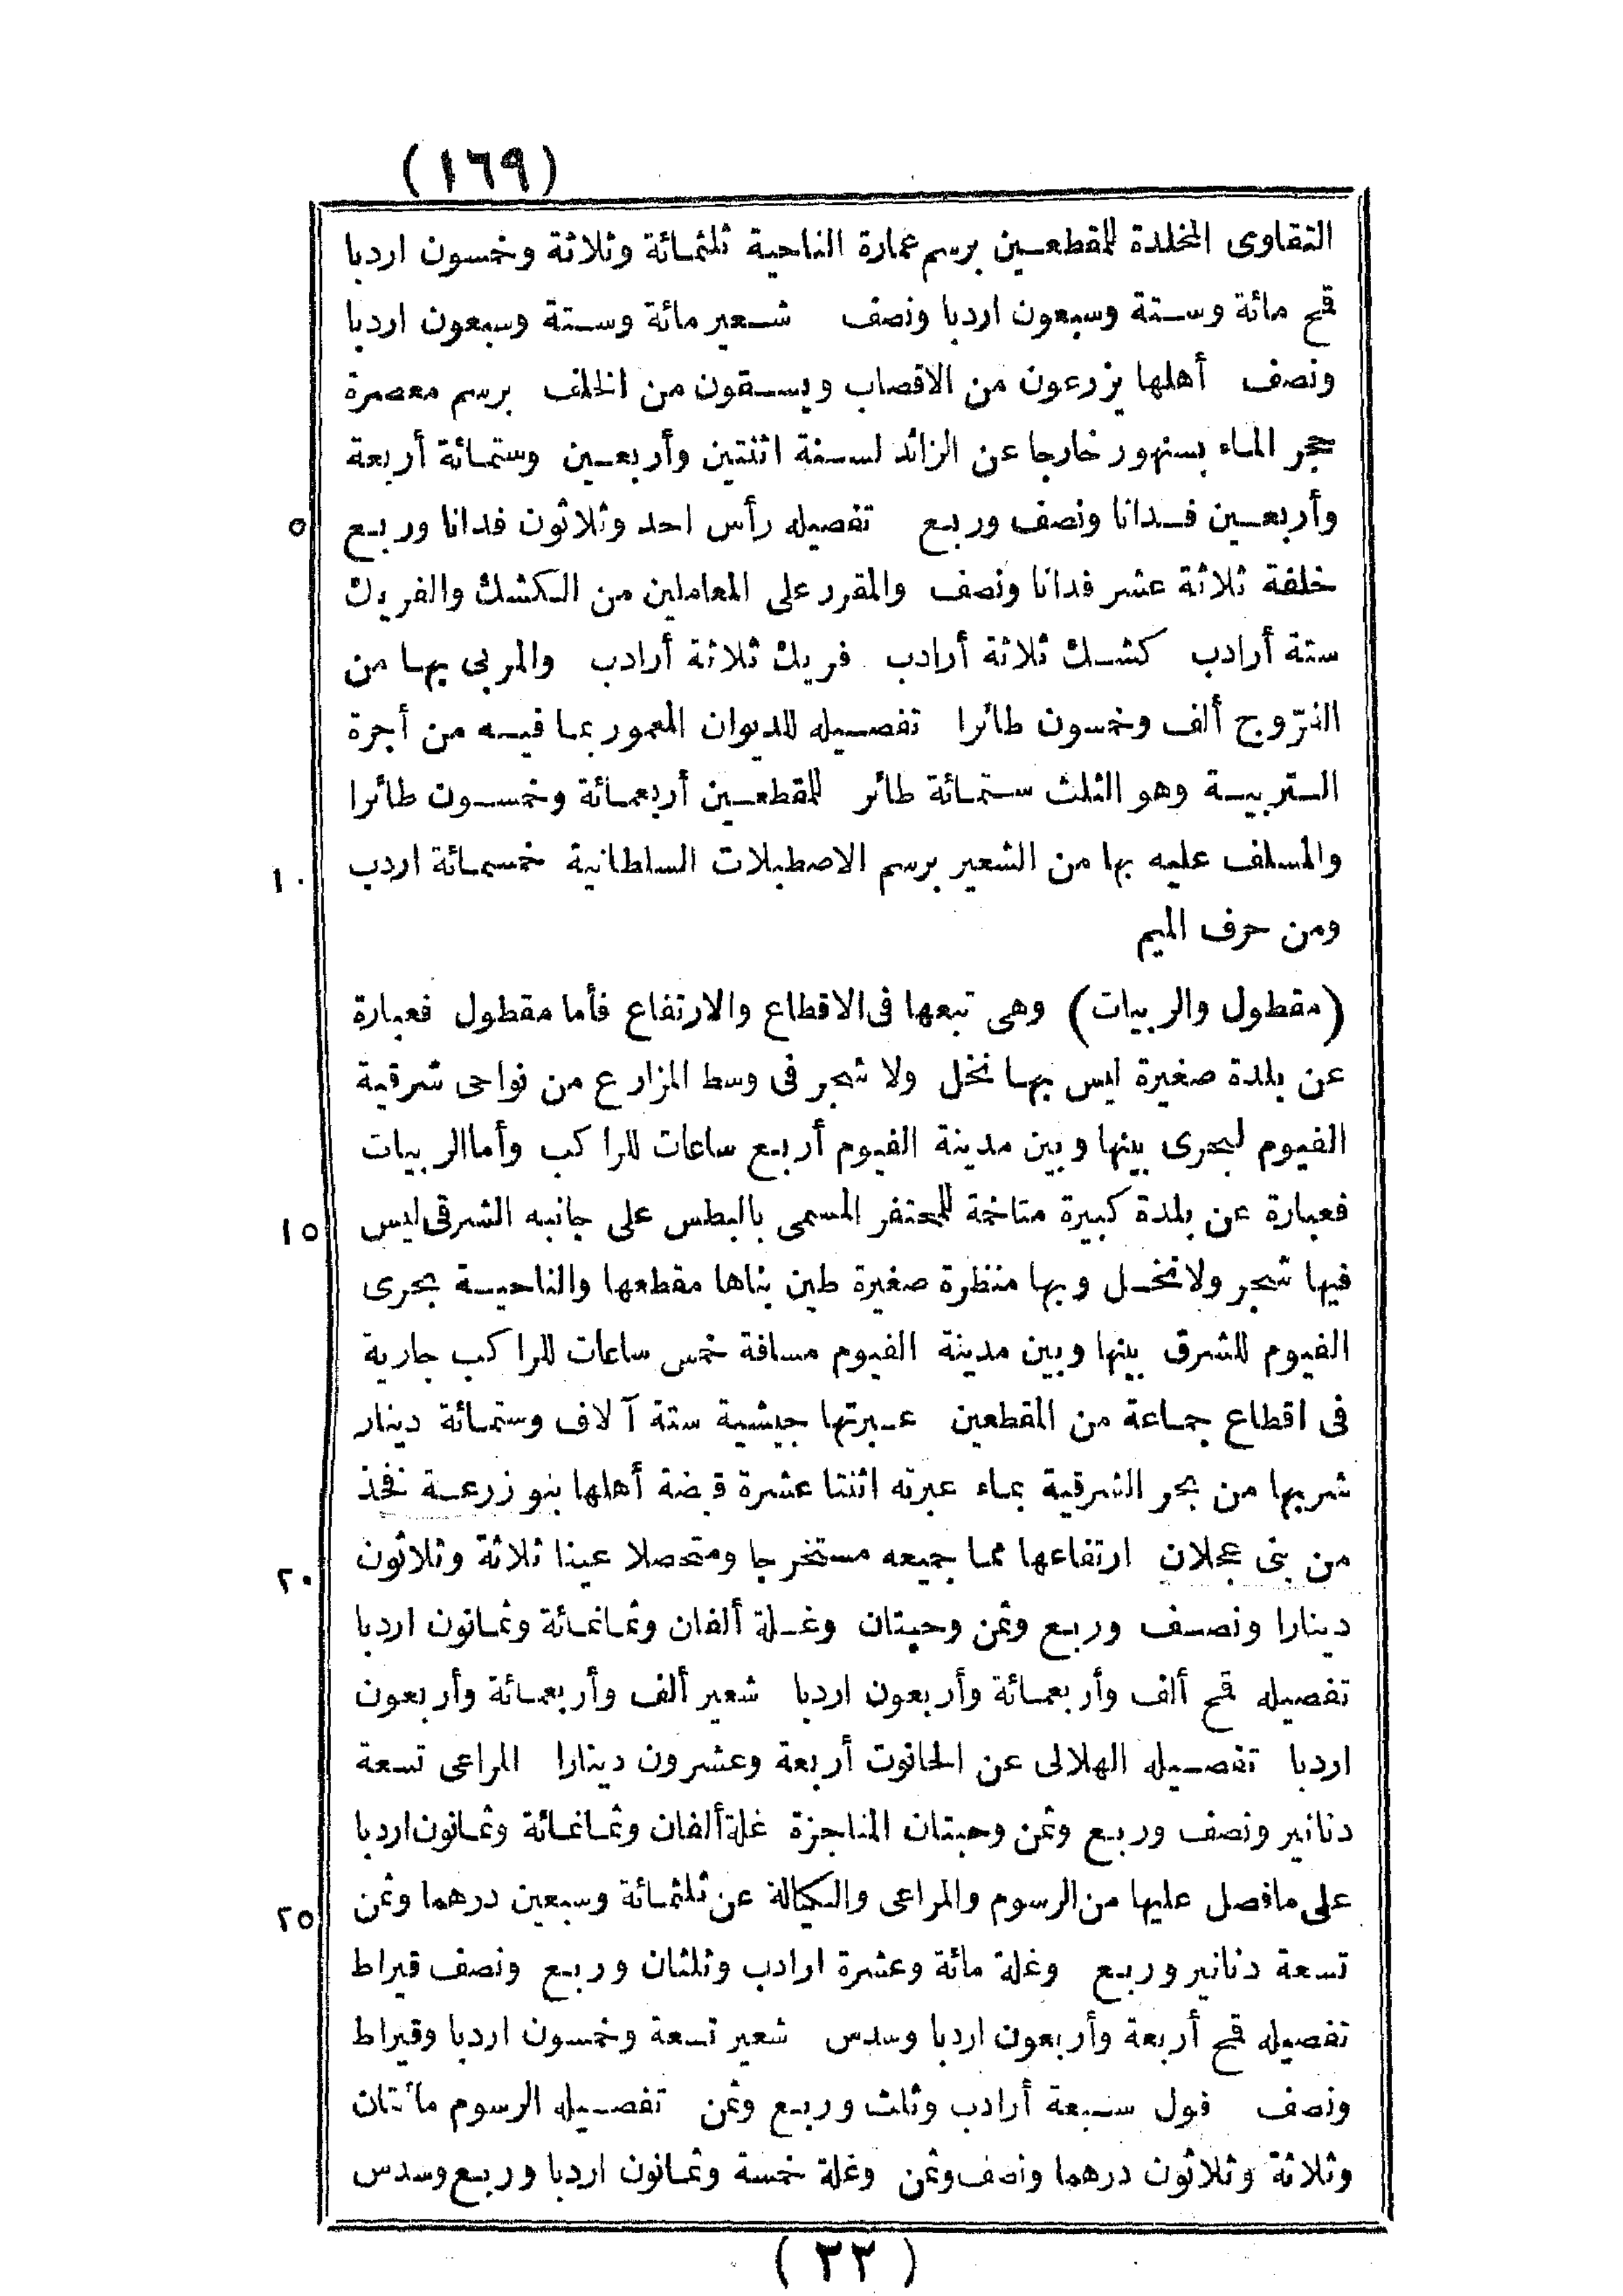 (١٦٩)
التقاوى المخلدة للمقطعين برسم عمارة الناحية ثلثمائة وثلاثة وخمسون اردبا
قمح مائة وستة وسبعون اردبا ونصف شعير مائة وستة وسبعون اردبا
ونصف أهلها يزرعون من الاقصاب ويسقون من الخلف برسم معصرة
حجر الماء بسنهور خارجا عن الزائد لسنة اثنتين وأربعين وستمائة أربعة
٥ وأربعين فدانا ونصف وربع تفصيله رأس احد وثلاثون فدانا وربع
خلفة ثلاثة عشر فدانا ونصف والمقرر على المعاملين من الكشك والفريك
ستة أرادب كشك ثلاثة أرادب فريك ثلاثة أرادب والمربى بها من
الفرّوج ألف وخمسون طائرا تفصيله للديوان المعمور بما فيه من أجرة
التربية وهو الثلث ستمائة طائر للمقطعين أربعمائة وخمسون طائرا
١٠ والمسلف عليه بها من الشعير برسم الاصطبلات السلطانية خمسمائة اردب
ومن حرف الميم
(مقطول والربيات) وهى تبعها فى الاقطاع والارتفاع فأما مقطول فعبارة
عن بلدة صغيرة ليس بها نخل ولا شجر فى وسط المزارع من نواحى شرقية
الفيوم لبحرى بينها وبين مدينة الفيوم أربع ساعات للراكب وأما الربيات
١٥ فعبارة عن بلدة كبيرة متاخمة للمحتفر المسمى بالبطس على جانبه الشرقى ليس
فيها شجر ولا نخل وبها منظرة صغيرة طين بناها مقطعها والناحية بحرى
الفيوم للشرق بينها وبين مدينة الفيوم مسافة خمس ساعات للراكب جارية
فى اقطاع جماعة من المقطعين عبرتها جيشية ستة آلاف وستمائة دينار
شربها من بحر الشرقية بماء عبرته اثنتا عشرة قبضة أهلها بنو زرعة فخذ
٢٠ من بنى عجلان ارتفاعها مما جميعه مستخرجا ومتحصلا عينا ثلاثة وثلاثون
دينارا ونصف وربع وثمن وحبتان وغلة ألفان وثمانمائة وثمانون اردبا
تفصيله قمح ألف وأربعمائة وأربعون اردبا شعير ألف وأربعمائة وأربعون
اردبا تفصيله الهلالى عن الحانوت أربعة وعشرون دينارا المراعى تسعة
دنانير ونصف وربع وثمن وحبتان المناجزة غلة ألفان وثمانمائة وثمانون اردبا
٢٥ على مافصل عليها من الرسوم والمراعى والكيالة عن ثلثمائة وسبعين درهما وثمن
تسعة دنانير وربع وغلة مائة وعشرة ارادب وثلثان وربع ونصف قيراط
تفصيله قمح أربعة وأربعون اردبا وسدس شعير تسعة وخمسون اردبا وقيراط
ونصف فول سبعة أرادب وثلث وربع وثمن تفصيله الرسوم مائتان
وثلاثة وثلاثون درهما ونصف وثمن وغلة خمسة وثمانون اردبا وربع وسدس
(٢٢)